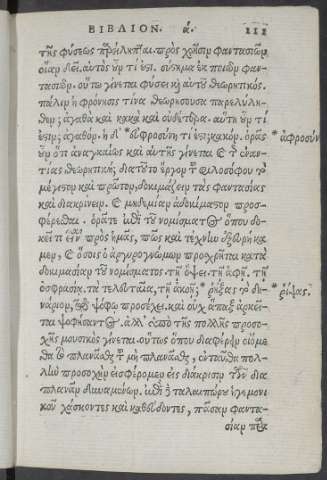 ΒΙΒΛΙΟΝ. ά. 111
τῆς φύσεως παρείληπται. πρὸς χρῆσιν φαντασιῶν
οἵων δεῖ. αὐτὸς οὖν τί ἐστι. σύστημα ἐκ ποιῶν φαν-
τασιῶν. οὕτω γίνεται φύσει καὶ αὑτοῦ θεωρητικός.
πάλιν ἡ φρόνησις τίνα θεωρήσουσα παρελήλυ-
θεν; ἀγαθὰ καὶ κακὰ καὶ οὐδέτερα. αὕτη οὖν τί
ἐστιν; ἀγαθόν. ἡ δ' *ἀφροσύνη τί ἐστι; κακόν. ὁρᾷς * ἀφροσύν
οὖν ὅτι ἀναγκαίως καὶ αὑτῆς γίνεται καὶ τῆς ἐναν-
τίας θεωρητική; διὰ τοῦτο ἔργον τοῦ φιλοσόφου τὸ
μέγιστον καὶ πρῶτον, δοκιμάζειν τὰς φαντασίας
καὶ διακρίνειν. καὶ μηδεμίαν ἀδοκίμαστον προσ-
φέρεσθαι. ὁρᾶτε ἐπὶ τοῦ νομίσματος ὅπου δο-
κεῖ τι εἶναι πρὸς ἡμᾶς, πῶς καὶ τέχνην ἐξευρήκα
μεν, καὶ ὅσοις ὁ ἀργυρογνώμων προσχρῆται κατὰ
δοκιμασίαν τοῦ νομίσματος. τῇ ὄψει. τῇ ἁφῇ. τῇ
ὀσφρασίᾳ. τὰ τελευταῖα, τῇ ἀκοῇ; * ῥήξας τὸ δη- * ῥίψας.
νάριον, τῷ ψόφῳ προσέχει. καὶ οὐχ ἅπαξ ἀρκεῖ-
ται ψοφήσαντος. ἀλλ' ὑπὸ τῆς πολλῆς προσο-
χῆς μουσικὸς γίνεται. οὕτως ὅπου διαφέρειν οἰόμε
θα τὸ πλανᾶσθαι τοῦ μὴ πλανᾶσθαι, ἐνταῦθα πολ-
λὴν προσοχὴν εἰσφέρομεν εἰς διάκρισιν τῶν δια
πλανᾶν δυναμένων. ἐπὶ δὲ ταλαιπώρου ἡγεμονι
κοῦ χάσκοντες καὶ καθεύδοντες, πᾶσαν φαντα-
σίαν παρ